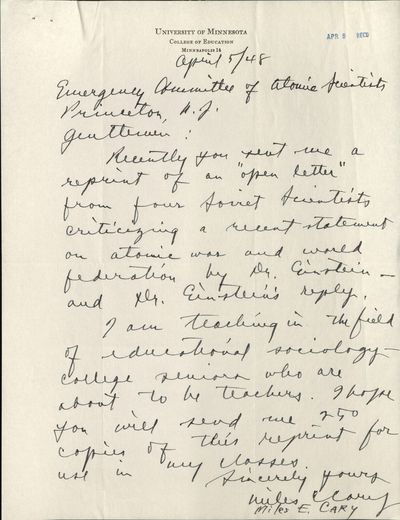 UNIVERSITY OF MINNESOTA
COLLEGE OF EDUCATION
MINNEAPOLIS 14
APR 8 RECD
April 5/48
Emergency Committee of Atomic Scientists
Princeton, N.J.
Gentlemen:
Recently you sent me a
reprint of an "open letter"
from four Soviet Scientists
criticizing a recent statement
on atomic war and world
federation by Dr. Einstein —
and Dr. Einstein's reply.
I am teaching in the field
of educational sociology —
college seniors who are
about to be teachers. I hope
you will send me 250
copies of this reprint for
use in my classes.
Sincerely yours
Miles E Cary
MILES E. CARY